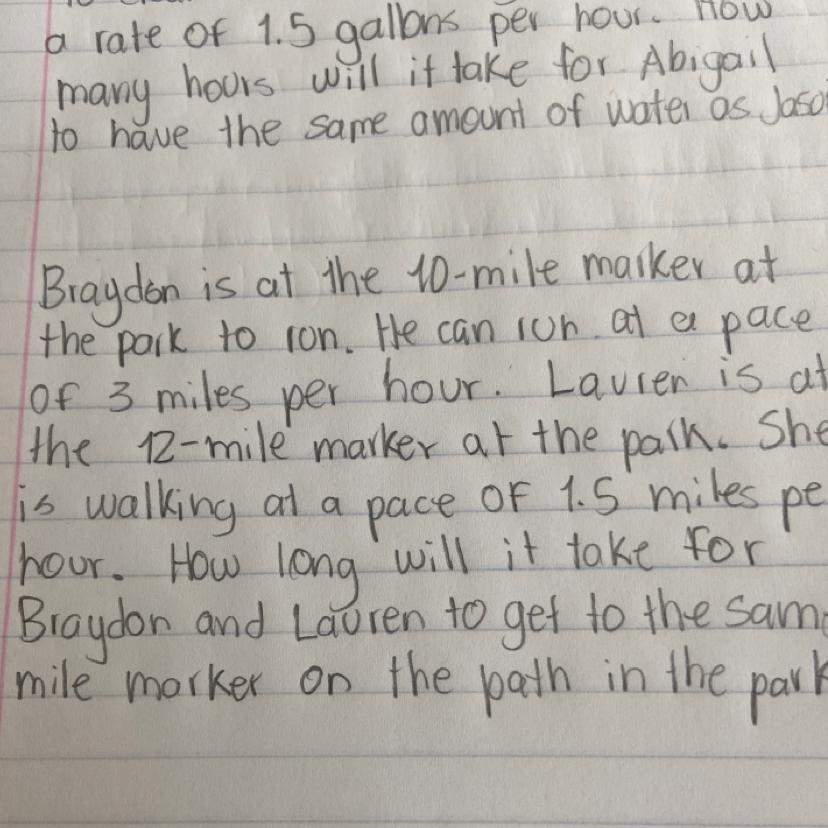 a rate of 1.5 gallons per hour. How
many hours will it take for Abigail
to have the same amount of water as Jaso
Braydon is at the 10-mile marker at
the park to run. He can run at a pace
of 3 miles per hour. Lauren is at
the 12-mile marker at the park. She
is walking at a pace of 1.5 miles pe
hour. How long will it take for
Braydon and Lauren to get to the sam
mile marker on the path in the park